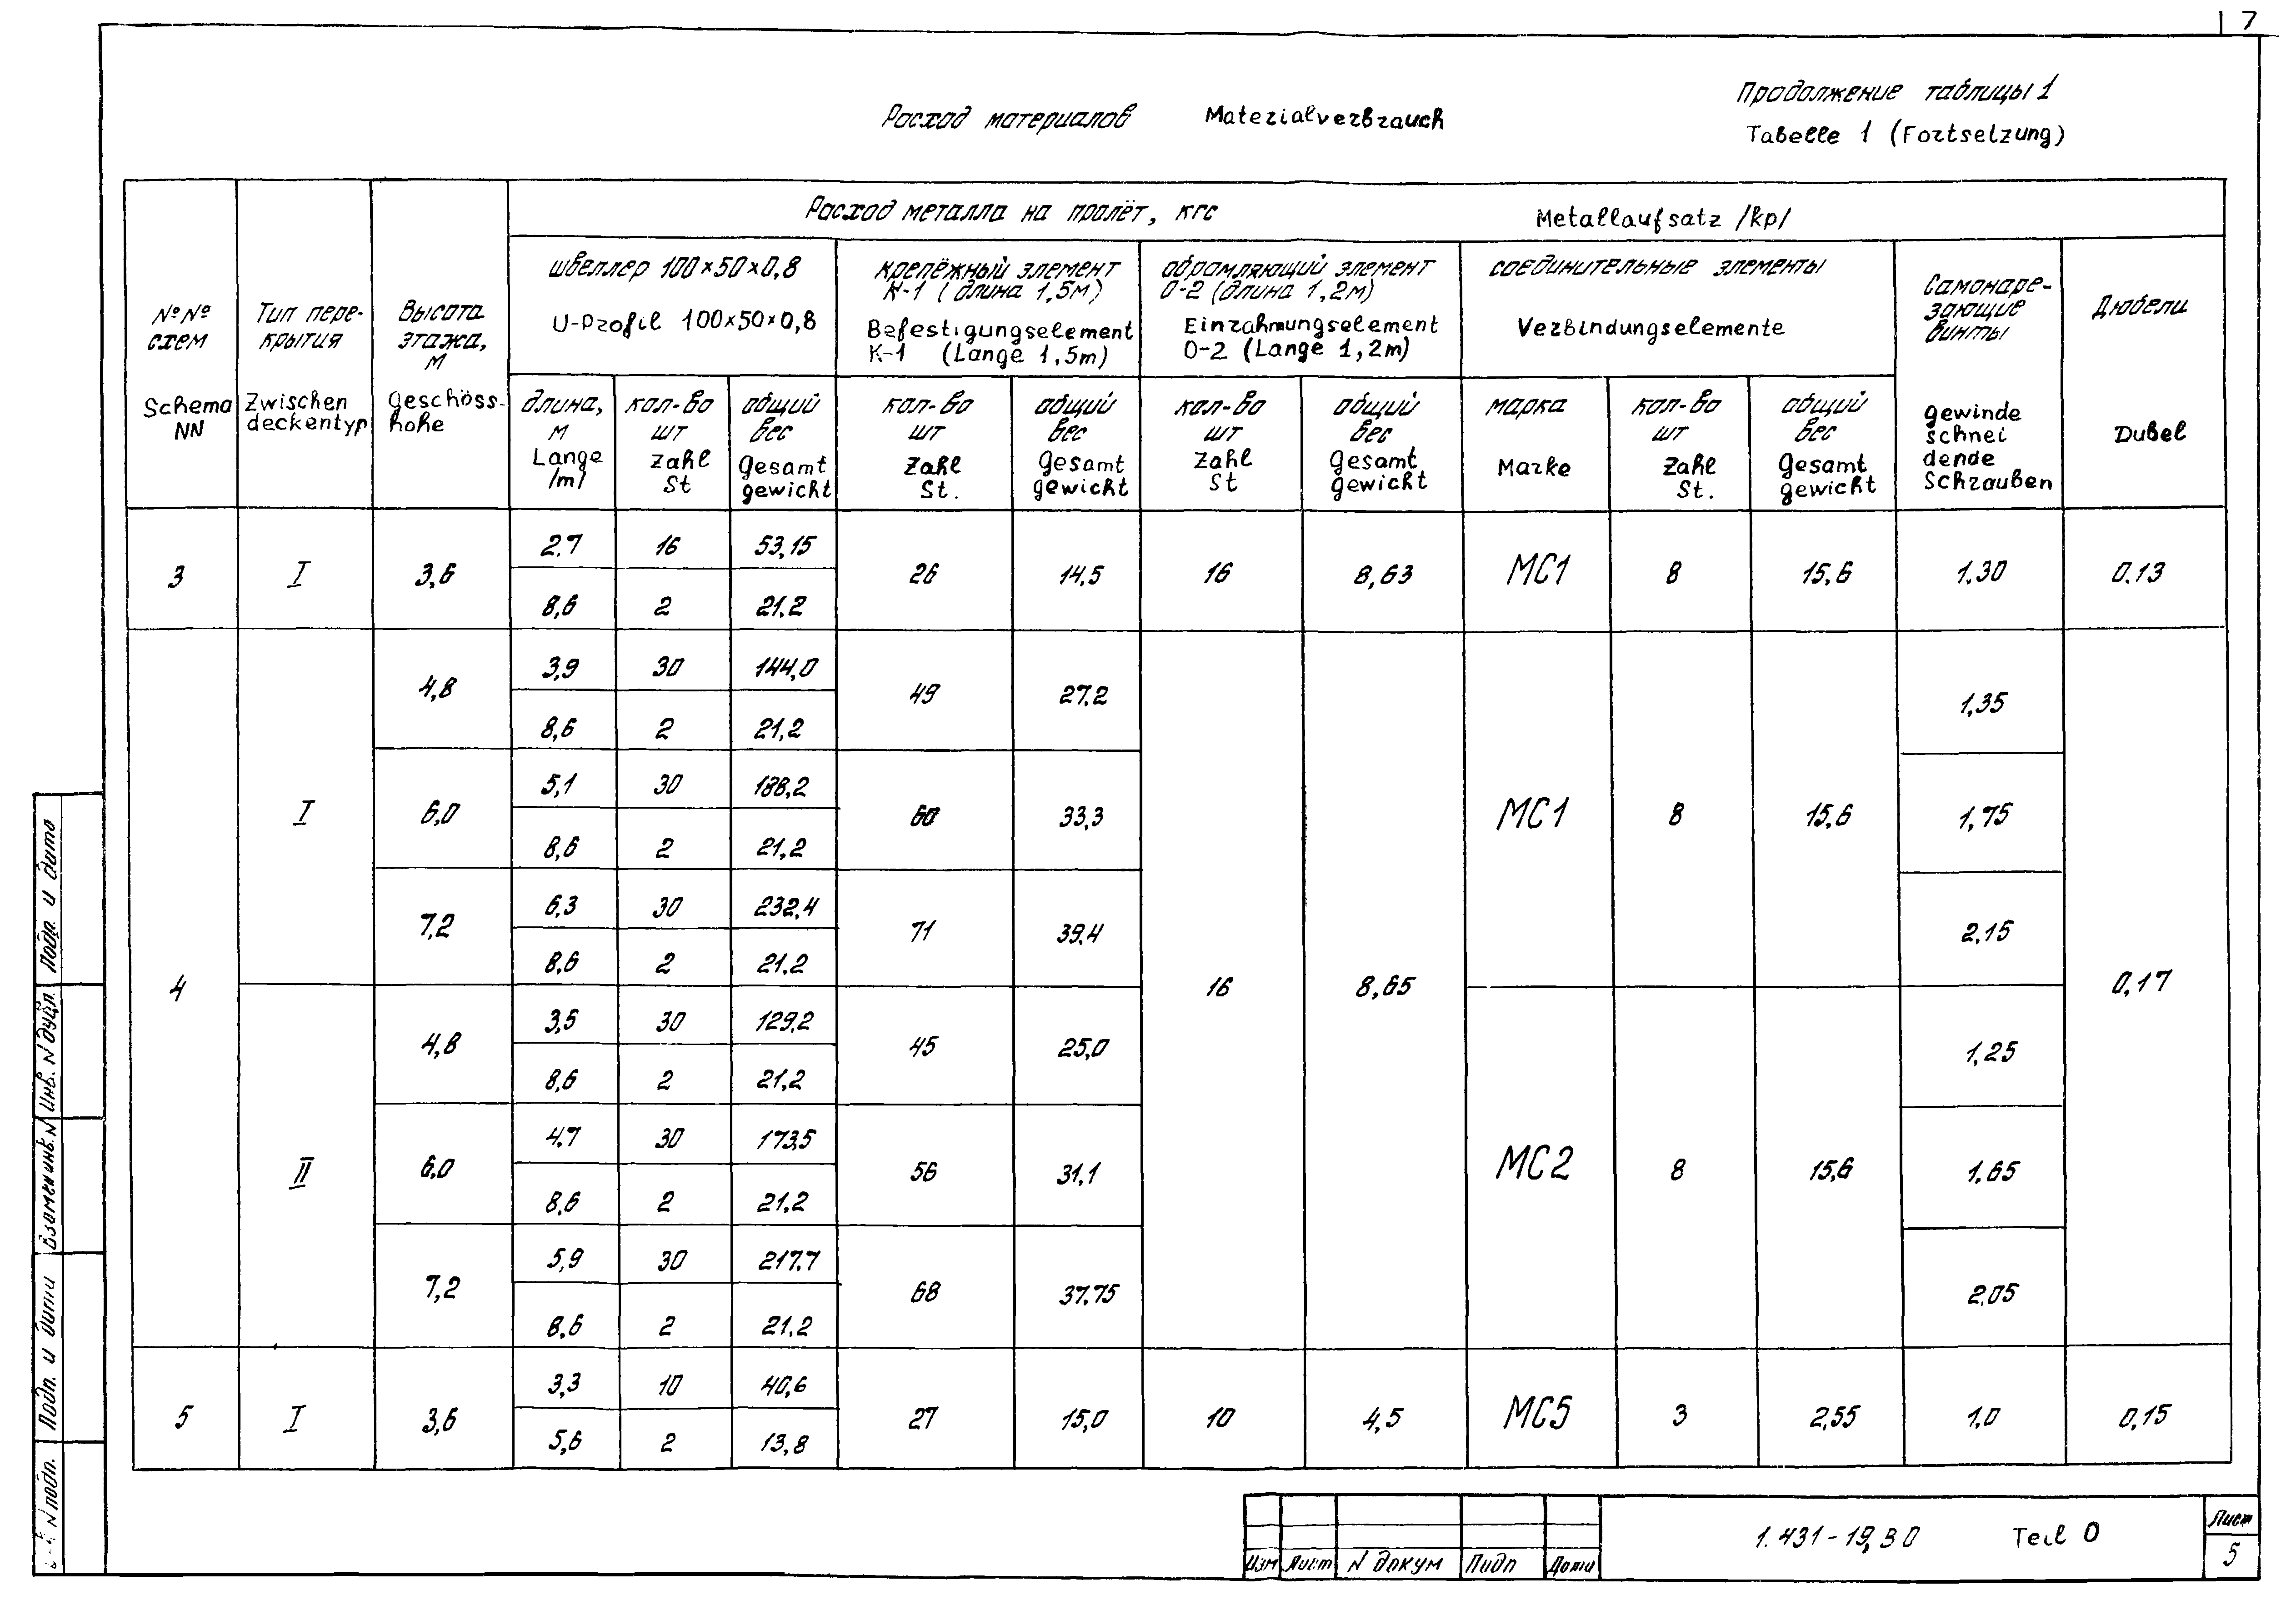 7
Расход материалов Materialverbrauch
Продолжение таблицы 1
Tabelle 1 (Fortselzung)
Расход металла на пролёт, кгс Metallaufsatz /kp/
№№ схем
Schema NN
Тип пере-
крытия
Zwischen
deckentyp
Высота
этажа,
м
Geschöss-
hohe
швеллер 100×50×0,8
U-Profil 100×50×0,8
крепёжный элемент
К-1 (длина 1,5м)
Befestigungselement
K-1 (Lange 1,5m)
обрамляющий элемент
О-2 (длина 1,2м)
Einrahmungselement
O-2 (Lange 1,2m)
соединительные элементы
Verbindungselemente
Самонаре-
зающие
винты
gewinde
schnei
dende
Schrauben
Дюбели
Dubel
длина,
м
Lange
/m/
кол-во
шт
Zahl
St
общий
вес
gesamt
gewicht
кол-во
шт
Zahl
St.
общий
вес
gesamt
gewicht
кол-во
шт
Zahl
St
общий
вес
gesamt
gewicht
марка
Marke
кол-во
шт
Zahl
St.
общий
вес
gesamt
gewicht
3 I 3,6 2,7 16 53,15 26 14,5 16 8,63 МС1 8 15,6 1,30 0.13
8,6 2 21,2
4 I 4,8 3,9 30 144,0 49 27,2 16 8,65 МС1 8 15,6 1,35 0,17
8,6 2 21,2
6,0 5,1 30 188,2 60 33,3 1,75
8,6 2 21,2
7,2 6,3 30 232,4 71 39,4 2,15
8,6 2 21,2
II 4,8 3,5 30 129,2 45 25,0 МС2 8 15,6 1,25
8,6 2 21,2
6,0 4,7 30 173,5 56 31,1 1,65
8,6 2 21,2
7,2 5,9 30 217,7 68 37,75 2,05
8,6 2 21,2
5 I 3,6 3,3 10 40,6 27 15,0 10 4,5 МС5 3 2,55 1,0 0,15
5,6 2 13,8
Подп. и дата
Инв. N дубл.
Взамен инв. N
Подп. и дата
N подл.
Изм Лист N докум Подп Дата
1.431-19, В 0 Teil 0
Лист
5